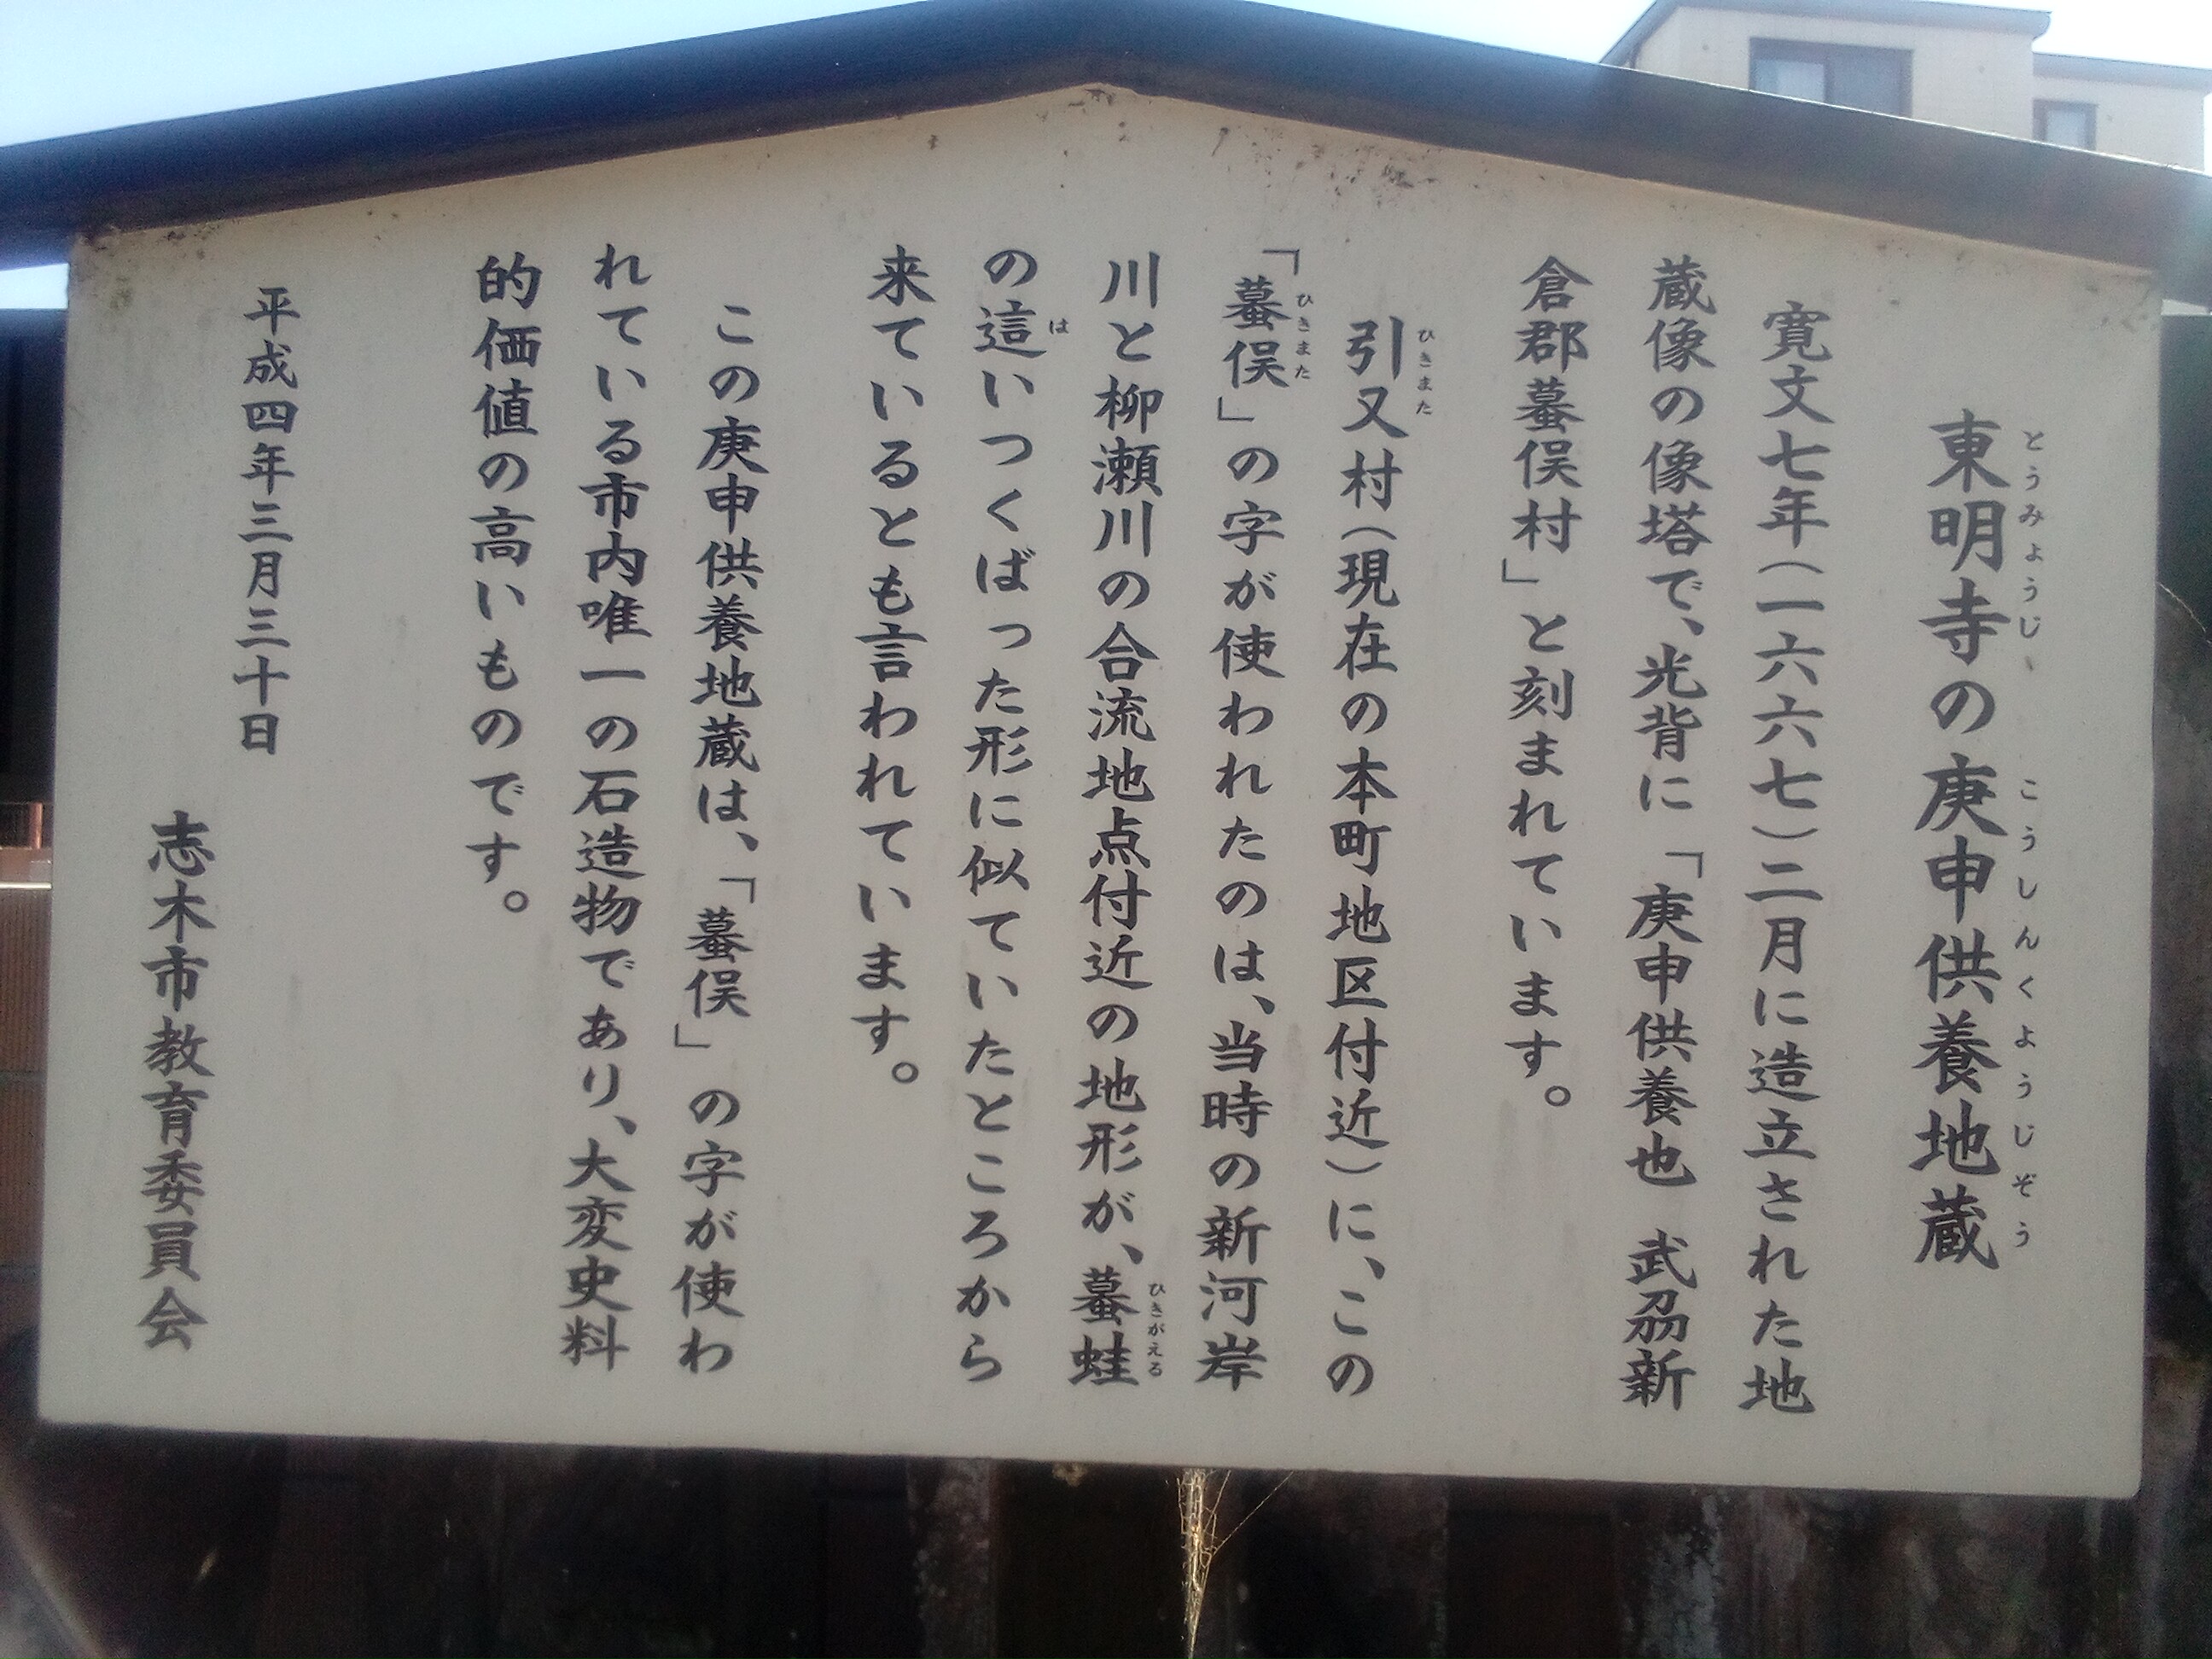 東明寺の庚申供養地蔵
寛文七年(一六六七)二月に造立された地
蔵像の像塔で、光背に「庚申供養也 武刕新
倉郡蟇俣村」と刻まれています。
引又村(現在の本町地区付近)に、この
「蟇俣」の字が使われたのは、当時の新河岸
川と柳瀬川の合流地点付近の地形が、蟇蛙
の這いつくばった形に似ていたところから
来ているとも言われています。
この庚申供養地蔵は、「蟇俣」の字が使わ
れている市内唯一の石造物であり、大変史料
的価値の高いものです。
平成四年三月三十日
志木市教育委員会